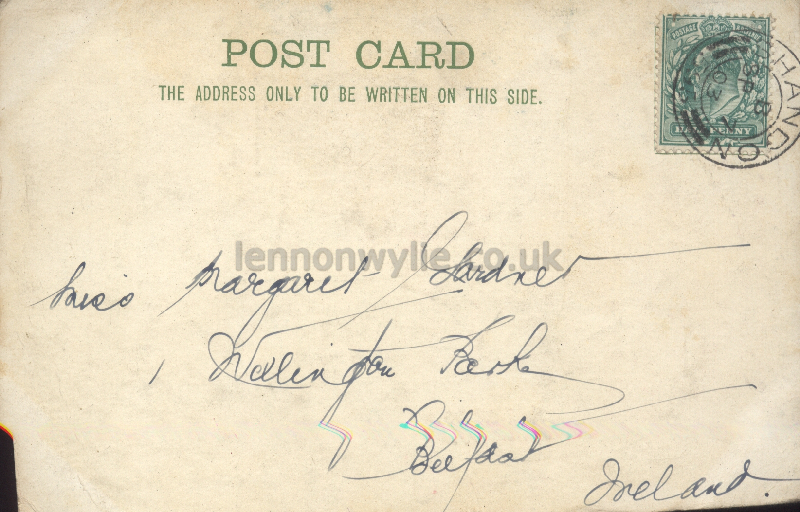 POST CARD
THE ADDRESS ONLY TO BE WRITTEN ON THIS SIDE.
POSTAGE
HALFPENNY
HANDON
B
03
lennonwylie.co.uk
Miss Margaret Gardner
1 Wellington Park
Belfast
Ireland.